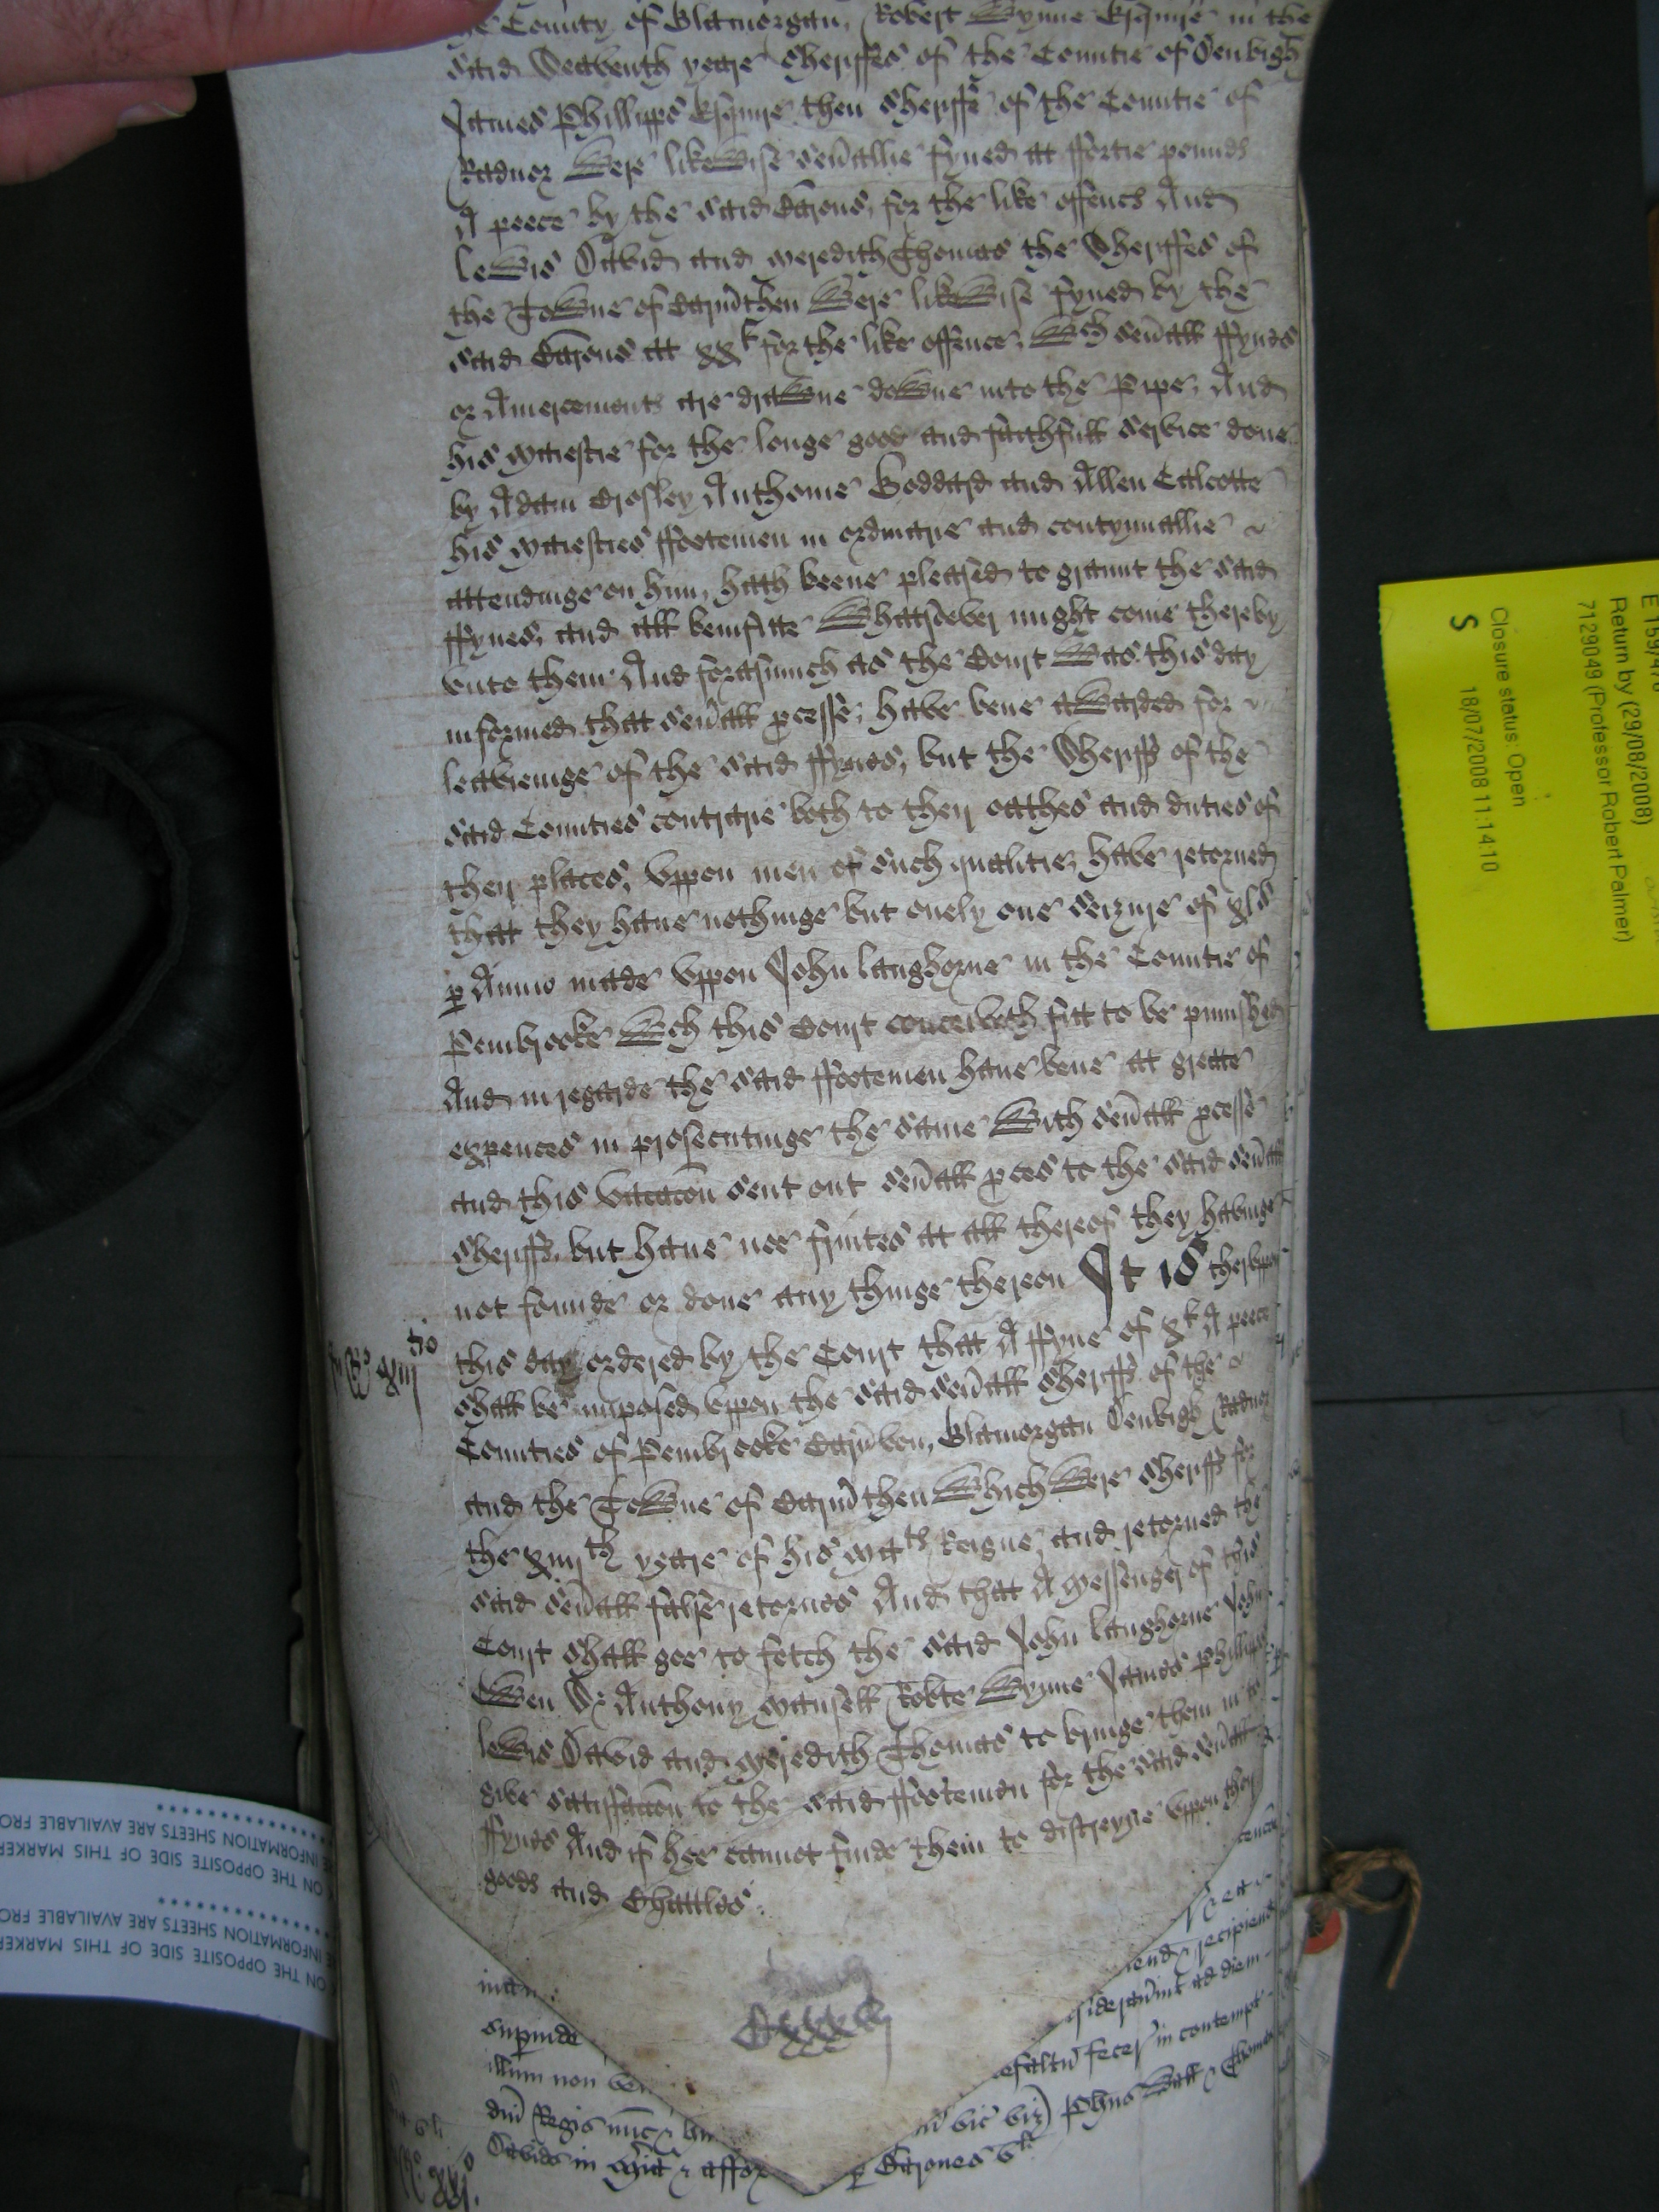 County of Glamorgan, Robert Wynne Esquire in the
said Seaventh yeare Sheriffes of the Countie of Denbigh
James Phillipps Esquire then Sheriffe of the Countie of
Radnor Were likeWise sev̄allie fyned att fortie pounds
A peece by the said Barons, for the like offence And
Lewis David and Meredith Thomas the Sheriffes of
the Towne of Carm̄then Were likeWise fyned by the
said Barons att xxˡ for the like offence, Wch sev̄all ffynes
or Amercements are drawne downe into the Pipe, And
his Maiestie for the longe good and faithfull service done
by Adam Crosley Anthonie Goddard and Allen Calcotte
his Maiesties ffootemen in ordinarie and contynuallie
attendinge on him, hath beene pleased to graunt the said
ffynes, and all benifitte Whatsoever might come thereby
unto them And forasmuch as the Court Was this day
informed that sev̄all pcesse, have bene awarded for
leavieinge of the said ffynes, but the Sheriffs of the
said Counties contrarie both to their oathes and duties of
their places, Uppon men of such qualitie, have retorned
that they have nothinge but onely one seizure of xls
p Anno made Uppon John Laughorne in the Countie of
Pembrooke Wch this Court conceiveth fitt to be punished
And in regarde the said ffootemen have bene att greate
expences in prosecutinge the same With sev̄all pcesse
and this vacacōn sent out sev̄all pces to the said sev̄all
Sheriffs, but have noe fruites att all thereof they havinge
not founde or done any thinge thereon It is therUppon
this day ordered by the Court that A ffyne of xˡ A peece
shall be imposed Uppon the said sev̄all Sheriffs of the
Counties of Pembrooke Carn̄von, Glamorgan Denbigh Radnor
and the Towne of Carm̄then Which Were Sheriffs for
the xiiijth yeare of his Mats Reigne, and retorned the
said sev̄all false retornes And that A Messenger of this
Court shall goe to fetch the said John Laughorne John
Owen Sr Anthony Mansell Robte Wynne James Phillipps
Lewis David and Meredith Thomas to bringe them in to
give satisfaccōn to the said ffootemen for the said sev̄all
ffynes And if hee cannot finde them to distreyne Uppon their
goods and Chattles.
recipiend
ad diem
illum non
fecer in contempt
dn̄i Regis nūc
Davids in
p Barones vˡ
E 159/
Return by (29/08/2008)
7129049 (Professor Robert Palmer)
Closure status: Open
18/07/2008 11:14:10
S
ON THE OPPOSITE SIDE OF THIS MARKER
INFORMATION SHEETS ARE AVAILABLE FRO
ON THE OPPOSITE SIDE OF THIS MARKER
INFORMATION SHEETS ARE AVAILABLE FRO